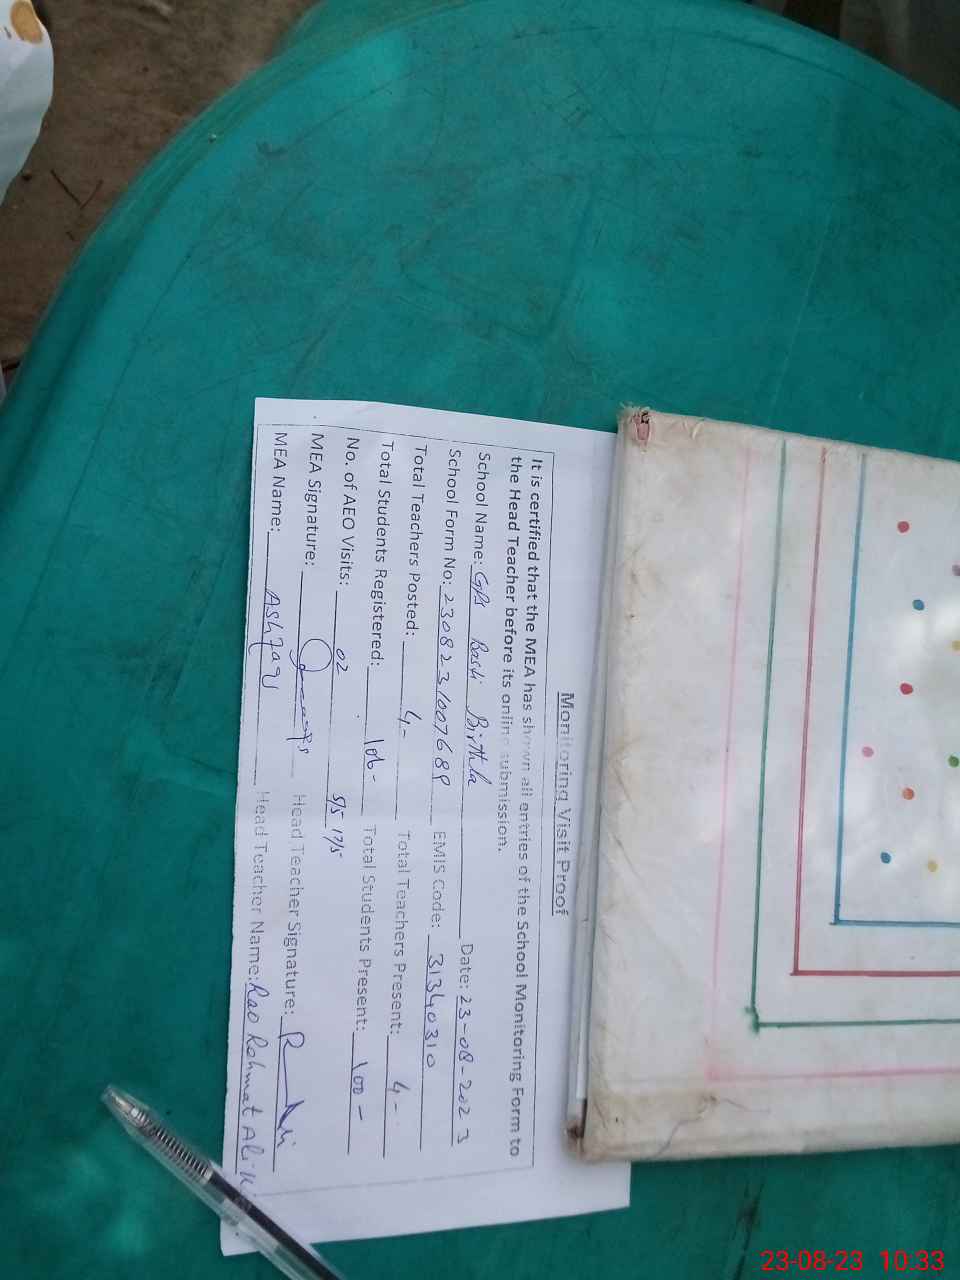 Monitoring Visit Proof
It is certified that the MEA has shown all entries of the School Monitoring Form to
the Head Teacher before its online submission.
School Name: GPS Basti Birthla Date: 23-08-2023
School Form No: 2308231007689 EMIS Code: 31340310
Total Teachers Posted: 4- Total Teachers Present: 4-
Total Students Registered: 106- Total Students Present: 100-
No. of AEO Visits: 02 5/5 17/5
MEA Signature: Head Teacher Signature:
MEA Name: Ashfaq Head Teacher Name: Rao Rahmat Ali
23-08-23 10:33